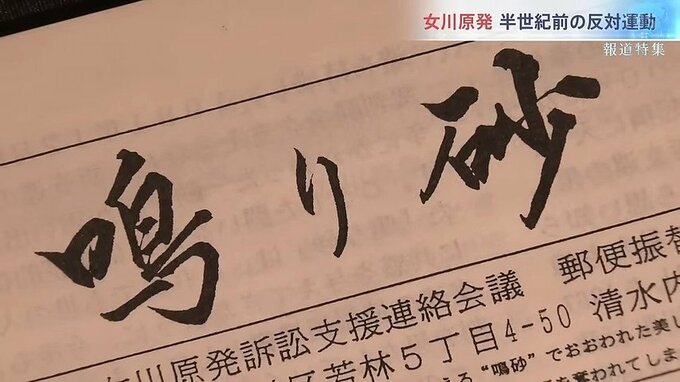 女川原発 半世紀前の反対運動
報道特集
鳴り砂
女川原発訴訟支援連絡会議 郵便振替
区若林5丁目4-50 清水内
る“鳴砂”でおおわれた美し
を奪われてしま